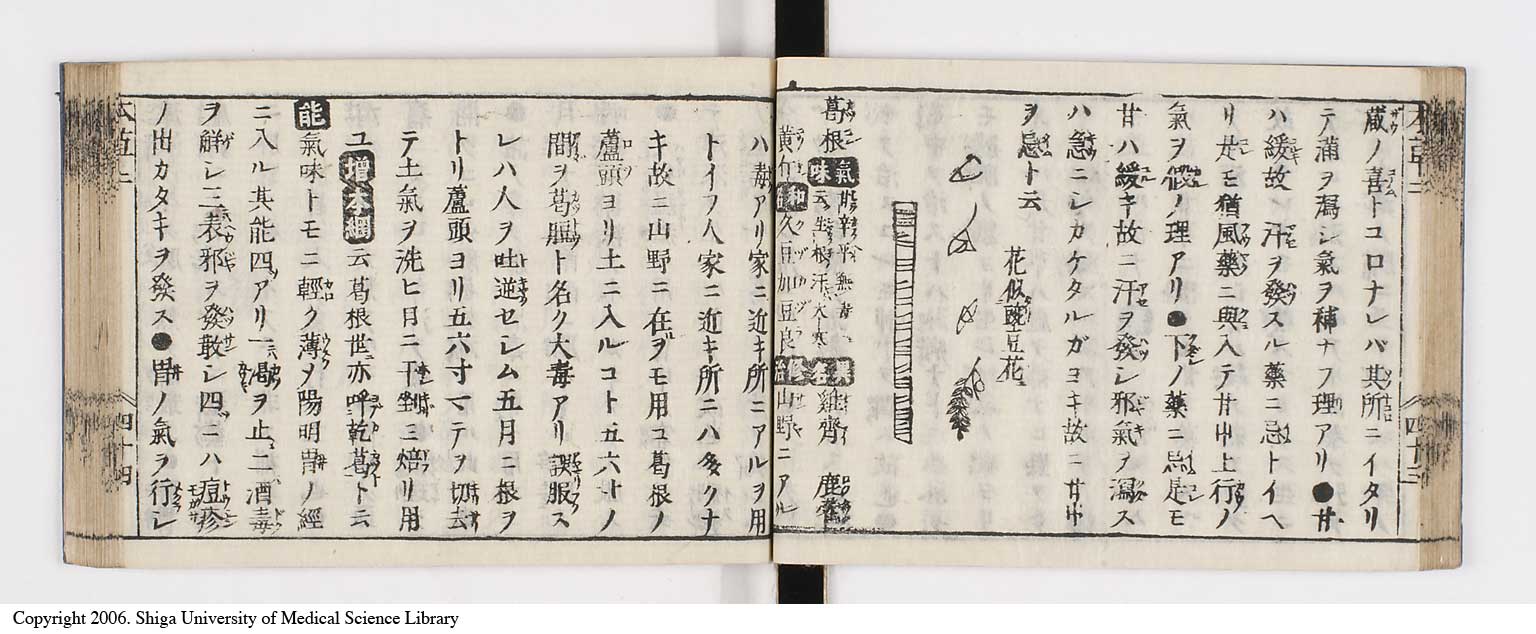 蔵ノ喜トコロナレバ其所ニイタリ
テ滿ヲ瀉シ氣ヲ補ナフ理アリ●甘
ハ緩故ニ汗ヲ發スル藥ニ忌トイヘ
リ是モ猶風藥ニ與入テ甘中上行ノ
氣ヲ假ノ理アリ●下ノ藥ニ忌是モ
甘ハ緩キ故ニ汗ヲ發シ邪氣ヲ瀉ス
ハ急ニシカケタルガヨキ故ニ甘中
ヲ忌ト云
花似豌豆花
葛根 氣味 甘辛平無毒 云生根汗大寒 異名 雞齊 鹿藿
黄斤 和名 久豆加豆良 修治 山野ニアル
ハ毒アリ家ニ近キ所ニアルヲ用
トイヲ人家ニ近キ所ニハ多クナ
キ故ニ山野ニ在ヲモ用ユ葛根ノ
蘆頭ヨリ土ニ入ルコト五六寸ノ
間ヲ葛脰ト名ク大毒アリ誤服ス
レハ人ヲ吐逆セシム五月ニ根ヲ
トリ蘆頭ヨリ五六寸マテヲ切去
テ土氣ヲ洗ヒ日ニ干剉ミ焙リ用
ユ 增本綱 云葛根世ニ亦呼乾葛ト云
能 氣味トモニ輕ク薄ヲ陽明胃ノ經
ニ入ル其能四アリ一ニ渇ヲ止二酒毒
ヲ解シ三表邪ヲ發散シ四ニハ痘疹
ノ出カタキヲ發ス●胃ノ氣ヲ行シ
四十三
四十四
Copyright 2006. Shiga University of Medical Science Library